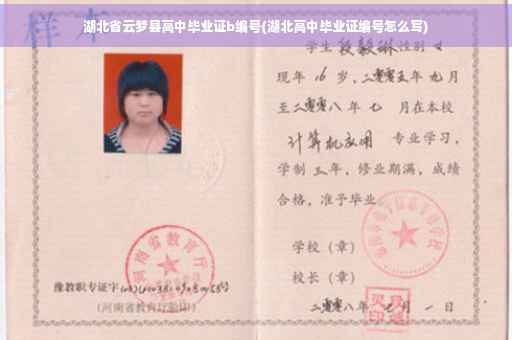 湖北省云梦县高中毕业证b编号(湖北高中毕业证编号怎么写)
样本
学生段毅琳性别女
现年16岁,二零零五年九月
至二零零八年七月在本校
计算机应用 专业学习,
学制三年,修业期满,成绩
合格,准予毕业。
学校(章)
校长(章)
二零零八年 月一日
河南省教育厅
豫教职专证字
(河南省教育厅验印)